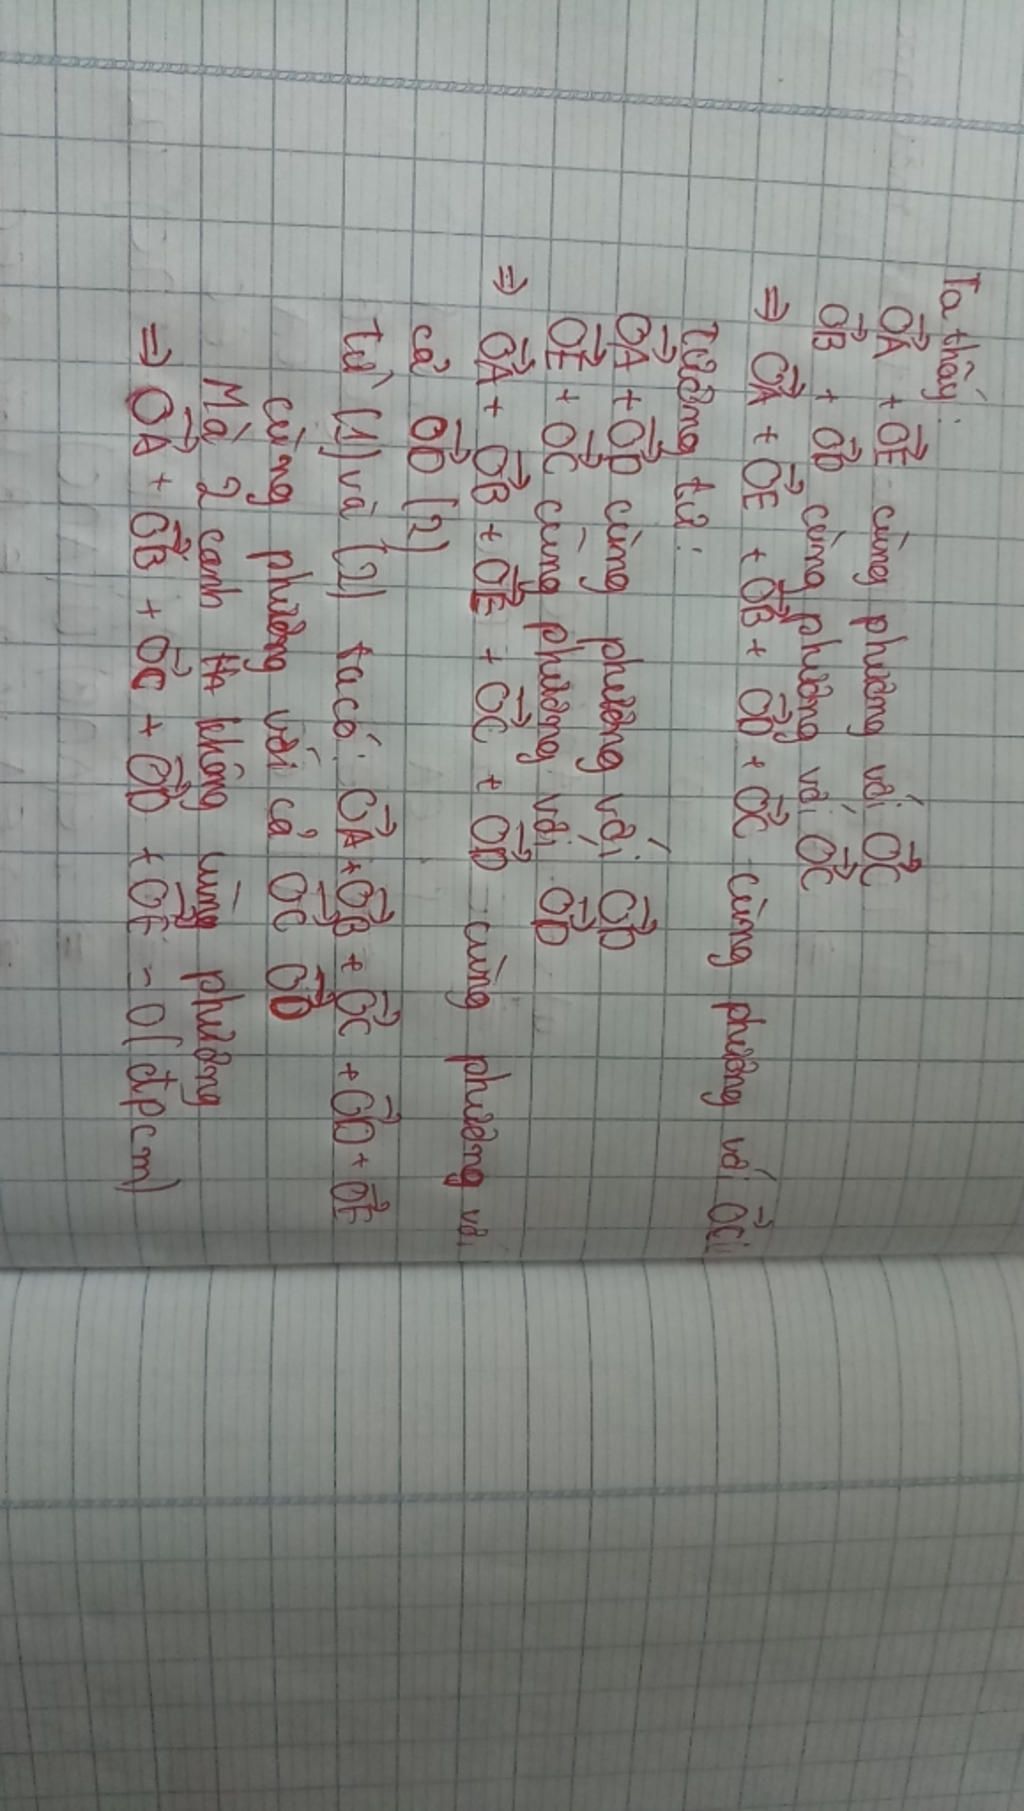 Ta thấy:
OA + OE cùng phương với OC
OB + OD cùng phương với OC
=> OA + OE + OB + OD + OC cùng phương với OC
tương tự:
OA + OD cùng phương với OD
OE + OC cùng phương với OD
=> OA + OB + OE + OC + OD cùng phương với
cả OD (2)
từ (1) và (2) ta có: OA + OB + OC + OD + OE
cùng phương với cả OC OD
Mà 2 cạnh không cùng phương
=> OA + OB + OC + OD + OE = 0 (đpcm)